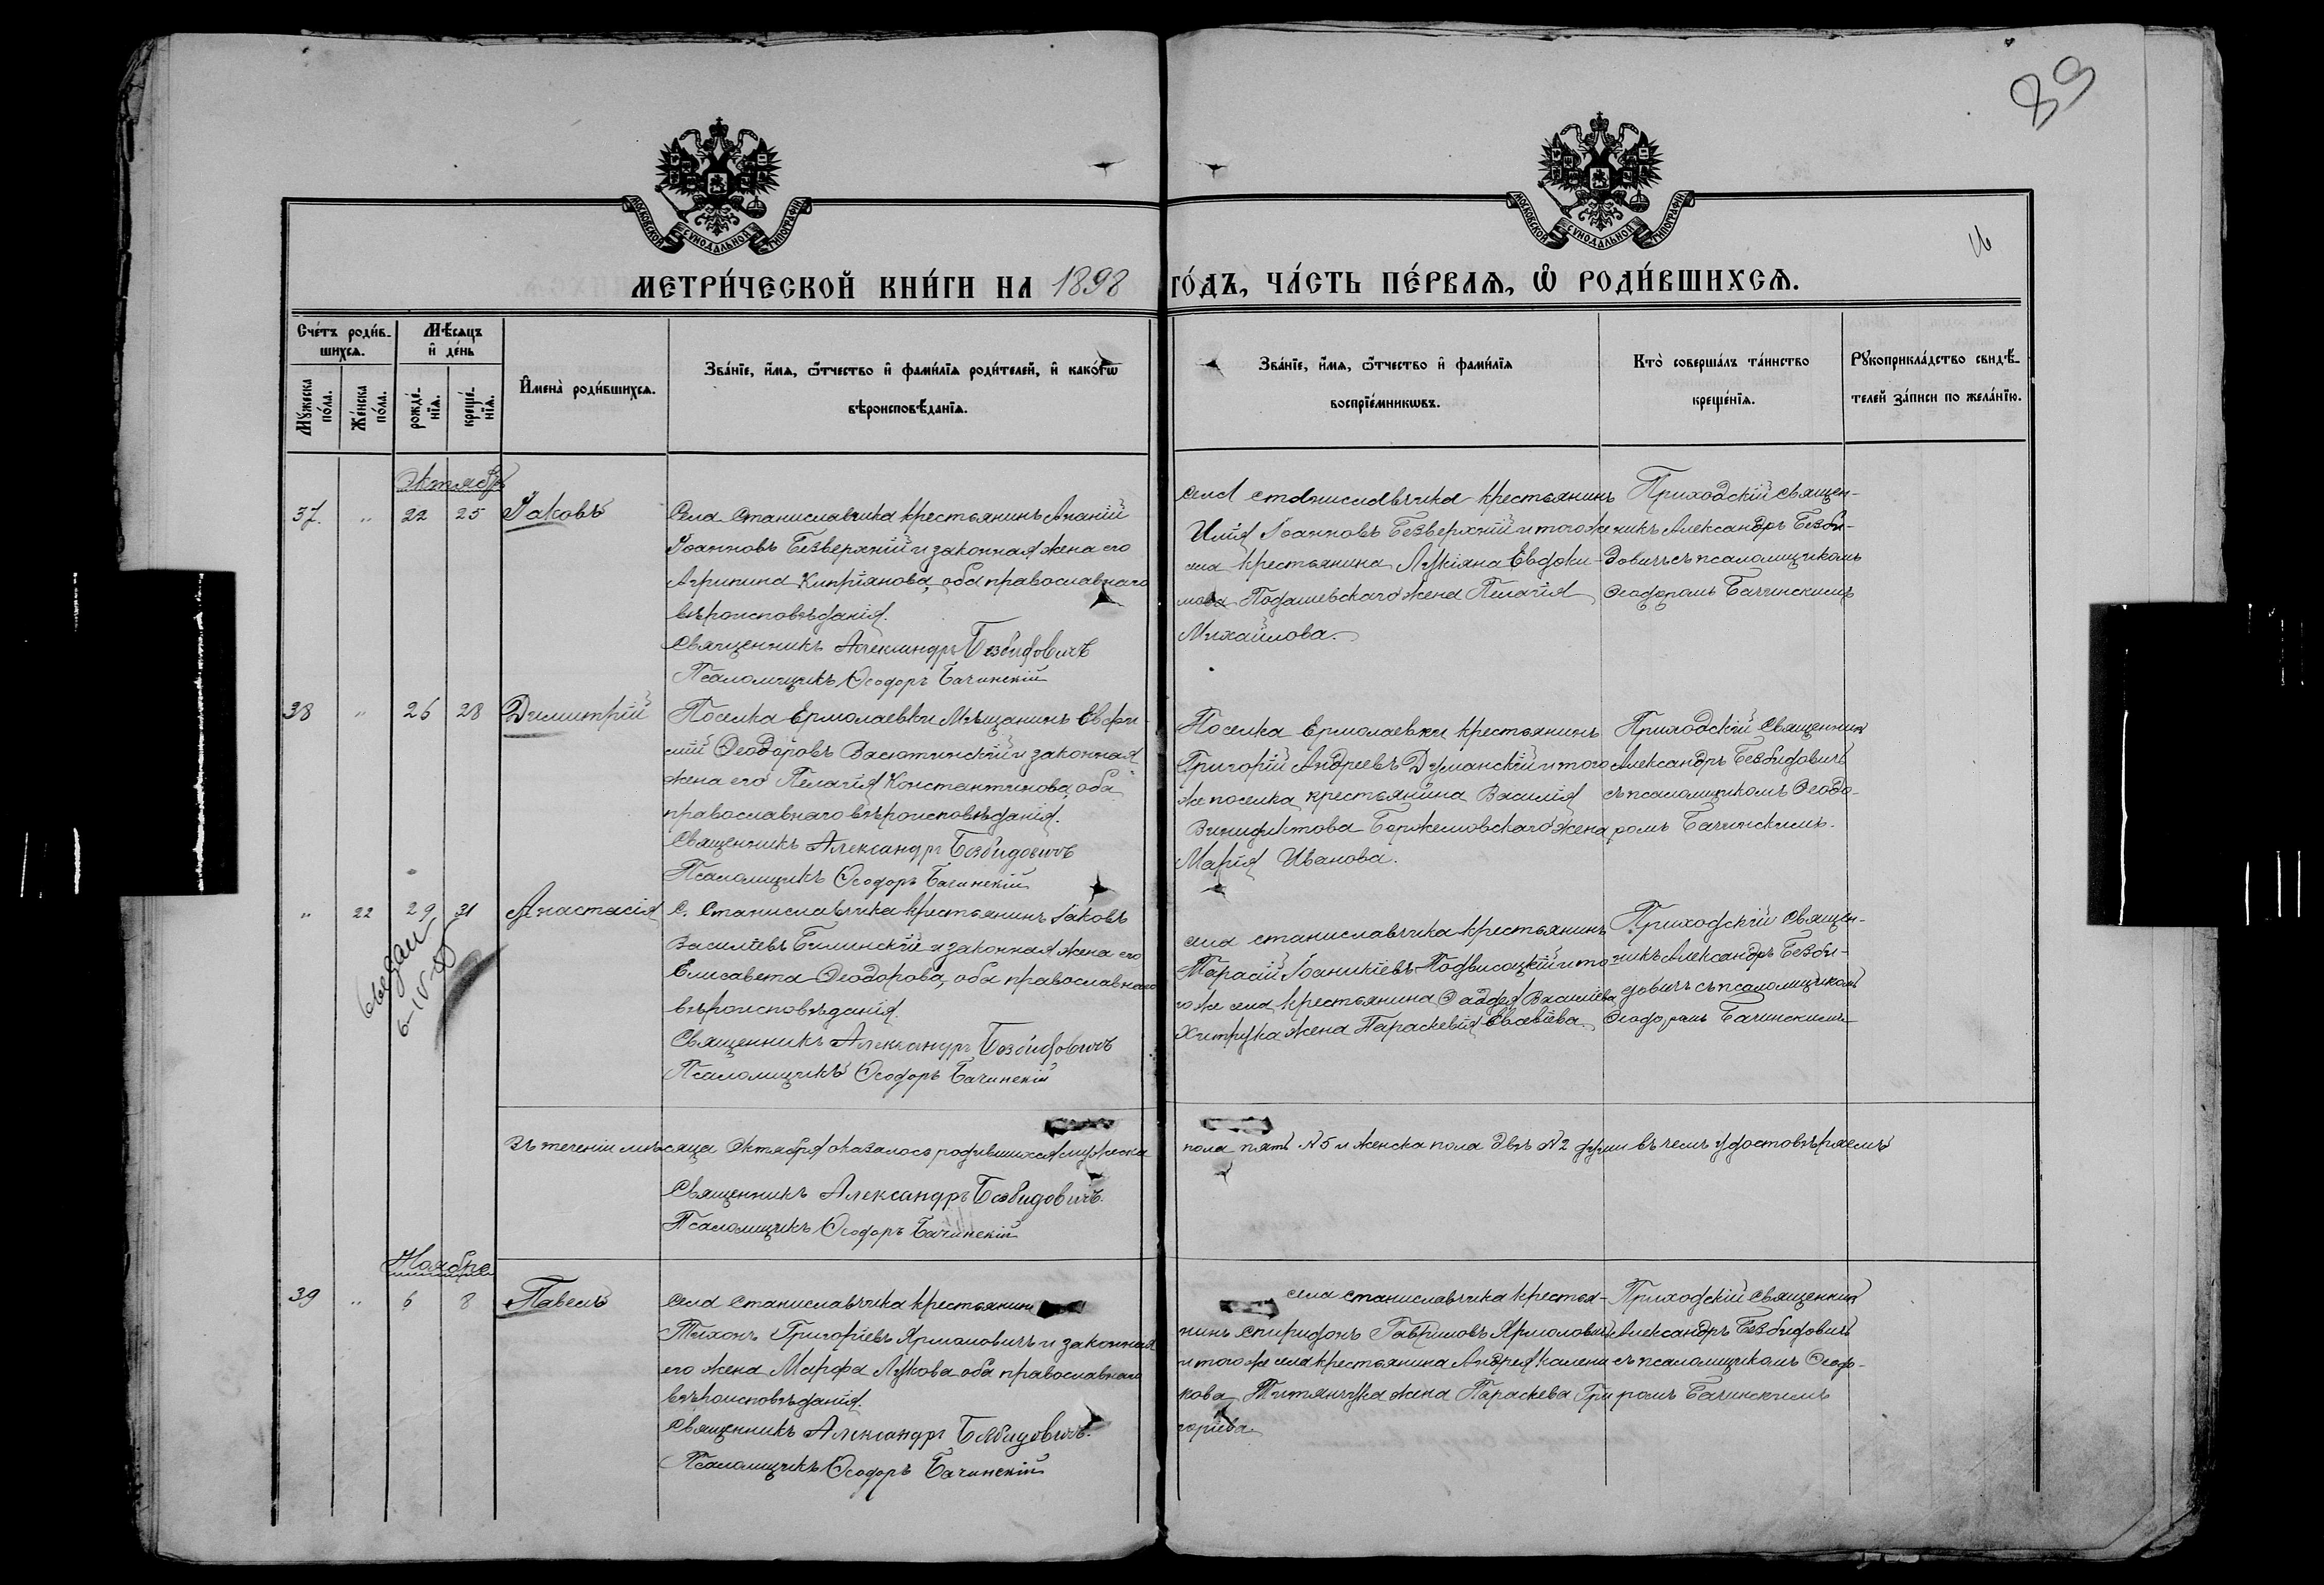 89
16
МОСКОВСКОЙ СУНОДАЛЬНОЙ ТИПОГРАФІИ
МОСКОВСКОЙ СУНОДАЛЬНОЙ ТИПОГРАФІИ
МЕТРИ́ЧЕСКОЙ КНИ́ГИ НА 1898 ГО́ДЪ, ЧА́СТЬ ПЕ́РВАѦ, Ѡ РОДИ́ВШИХСѦ.
Сче́тъ роди́в-
шихсѧ.
Мꙋжеска по́ла.
Же́нска по́ла.
Мѣ́сѧцъ
и҆ де́нь
рожде́-
нїѧ.
креще́-
нїѧ.
И҆мена̀ роди́вшихсѧ.
Зва́нїе, и҆́мѧ, ѻ҆́тчество и҆ фами́лїѧ роди́телей, и҆ како́гѡ
вѣроисповѣ́данїѧ.
Зва́нїе, и҆́мѧ, ѻ҆́тчество и҆ фами́лїѧ
воспрїе́мникѡвъ.
Кто̀ соверша́лъ та́инство
креще́нїѧ.
Рꙋкоприкла́дство свидѣ́-
телей за́писи по жела́нїю.
Октябрь
37. " 22 25 Іаковъ
Села Станиславчика крестьянинъ Ананій
Іоанновъ Безверхній и законная жена его
Агрипина Кипріянова, оба православнаго
вѣроисповѣданія.
Священникъ Александръ Безбидовичъ
Псаломщикъ Ѳеодоръ Бачинскій
села станиславчика крестьянинъ
Илія Іоанновъ Безверхній и того же
села крестьянина Лукіяна Евдоки-
мова Подашевскаго жена Пелагія
Михаилова.
Приходскій священ-
никъ Александръ Безби-
довичъ съ псаломщикомъ
Ѳеодоромъ Бачинскимъ
38 " 26 28 Димитрій
Поселка Ермолаевки Мѣщанинъ Евфи-
мій Ѳеодоровъ Васютинскій и законная
жена его Пелагія Константинова, оба
православнаго вѣроисповѣданія.
Священникъ Александръ Безбидовичъ
Псаломщикъ Ѳеодоръ Бачинскій
Поселка Ермолаевки крестьянинъ
Григорій Андреевъ Думанскій и того
же поселка крестьянина Василія
жена
Марія Иванова.
Приходскій Священникъ
Александръ Безбидовичъ
съ псаломщикомъ Ѳеодо-
ромъ Бачинскимъ.
" 22 29 31 Анастасія
С. Станиславчика крестьянинъ Іаковъ
Василіевъ Билинскій и законная жена его
Елисавета Ѳеодорова, оба православнаго
вѣроисповѣданія.
Священникъ Александръ Безбидовичъ
Псаломщикъ Ѳеодоръ Бачинскій
села станиславчика крестьянинъ
Тарасій Іоаникіевъ Подвисоцкій и то-
го же села крестьянина Фаддея Василіева
Хитрука жена Параскевія
Приходскій Священ-
никъ Александръ Безби-
довичъ съ псаломщикомъ
Ѳеодоромъ Бачинскимъ
Въ теченіи мѣсяца Октября оказалось родившихся мужеска пола пять №5 и женска пола двѣ №2 души въ чемъ удостовѣряемъ
Священникъ Александръ Безбидовичъ.
Псаломщикъ Ѳеодоръ Бачинскій
Ноябрь
39 " 6 8 Павелъ
Села Станиславчика крестьянинъ
Тихонъ Григоріевъ Ярмоловичъ и законная
его жена Марфа Лукова оба православнаго
вѣроисповѣданія.
Священникъ Александръ Безбидовичъ.
Псаломщикъ Ѳеодоръ Бачинскій
села станиславчика крестья-
нинъ Спиридонъ Гавриловъ Ярмоловичъ
и того же села крестьянина Андрея Калени-
кова Титянчука жена Параскева Гри-
горіева
Приходскій Священникъ
Александръ Безбидовичъ
съ псаломщикомъ Ѳеодо-
ромъ Бачинскимъ